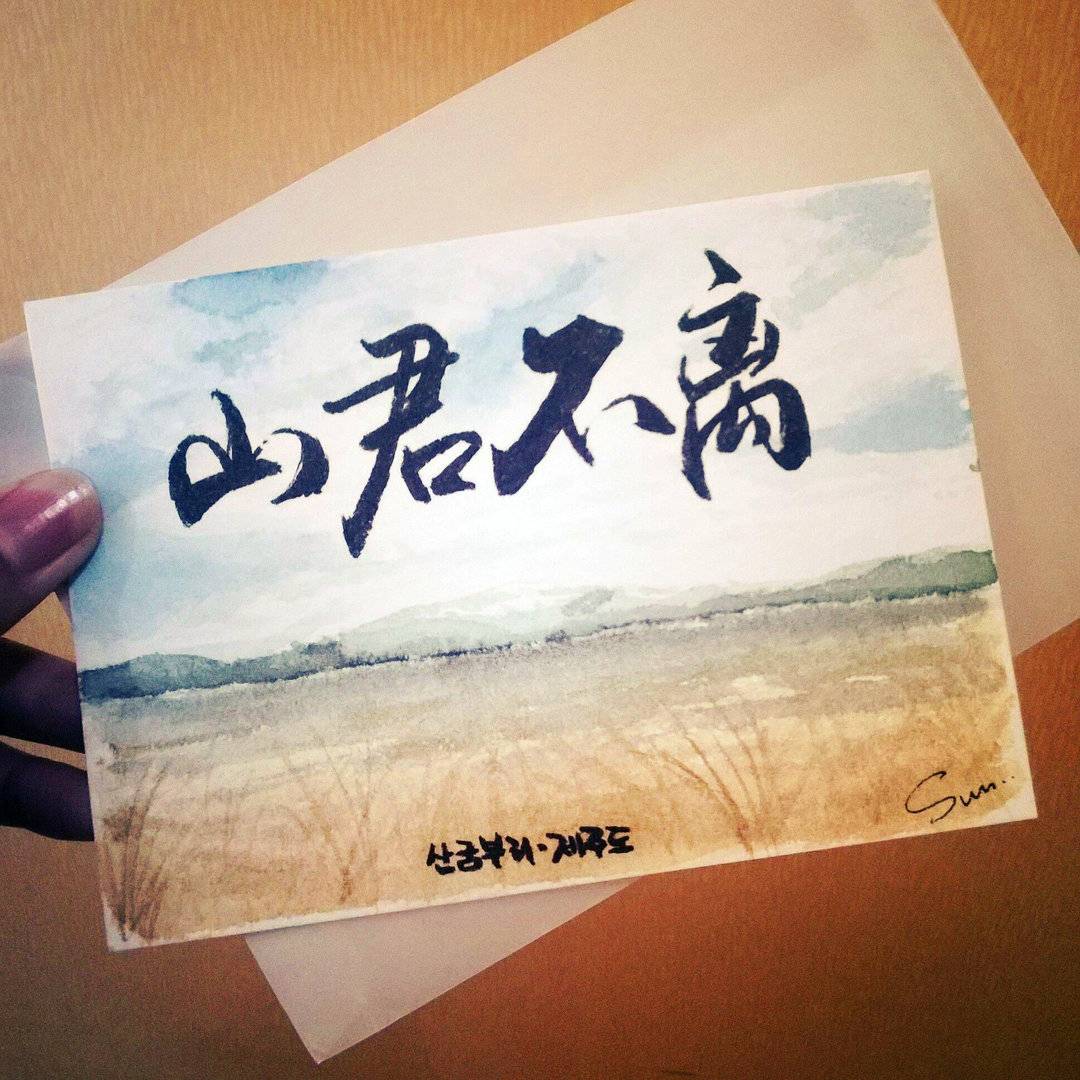 山君不离
Sun..
산굼부리·제주도